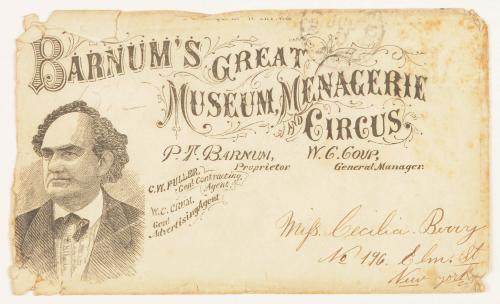 BARNUM'S GREAT
MUSEUM, MENAGERIE
AND CIRCUS,
P. T. BARNUM,
Proprietor
W. C. COUP,
General Manager.
C. W. FULLER,
Gen'l Contracting
Agent
W. C. CRUM,
Gen'l
Advertising Agent
Miss Cecilia Berry
No 196. Elm. St
New York